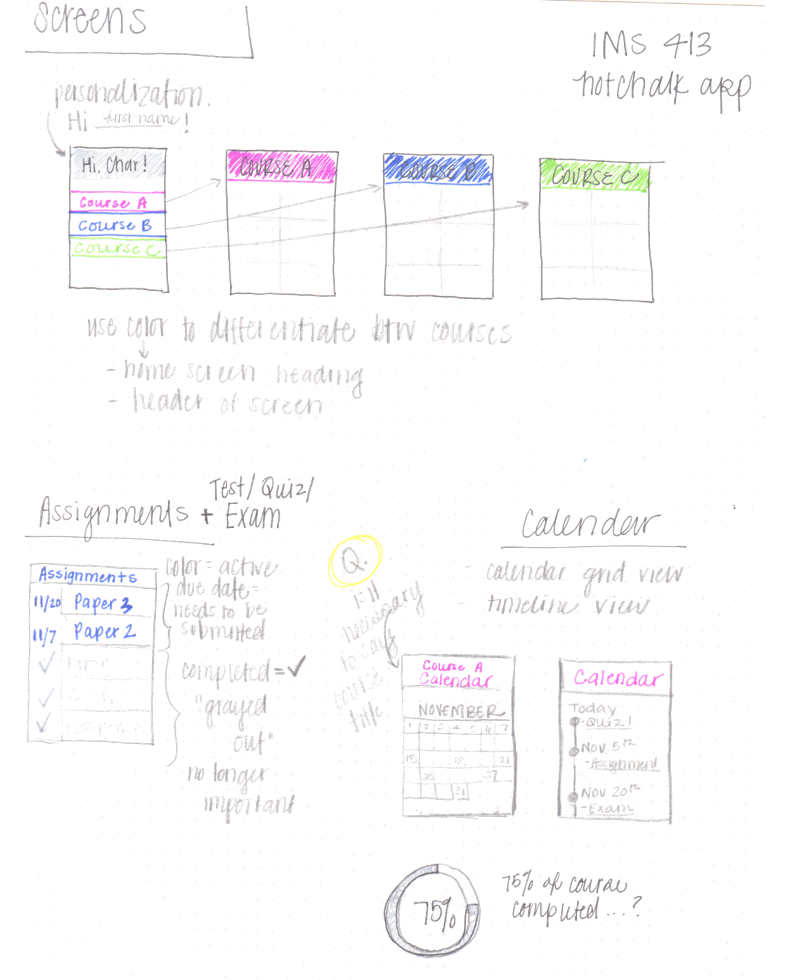 Screens
IMS 413
hotchalk app
personalization.
Hi first name!
Hi, Char!
Course A
Course B
Course C
COURSE A
COURSE B
COURSE C
use color to differentiate btw courses
- home screen heading
- header of screen
Assignments + Test/Quiz/
Exam
Assignments
11/20 Paper 3
11/7 Paper 2
color = active
due date =
needs to be
submitted
completed = ✓
"grayed
out"
no longer
important
Q.
necessary
course
title
Calendar
- calendar grid view
- timeline view
Course A
Calendar
NOVEMBER
1 2 3 4 5 6 7
Calendar
Today
- Quiz!
Nov. 5th
- Assignment
Nov 20th
- Exam
75%
75% of course
completed...?